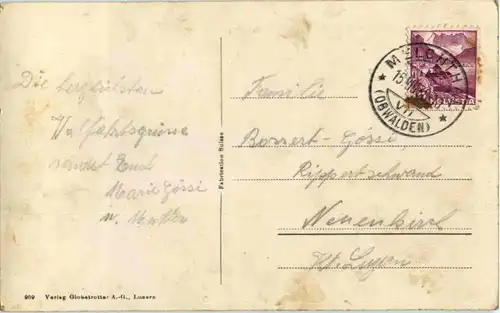 Die herzlichsten
Walfahrtsgrüsse
sendet Euch
Marie Gössi
u. Mutter
Familie
Bossert-Gössi
Rippertschwand
Neuenkirch
Kt. Luzern
MELCHTAL
VII
(OBWALDEN)
HELVETIA
Fabrication Suisse
909 Verlag Globetrotter A.-G., Luzern